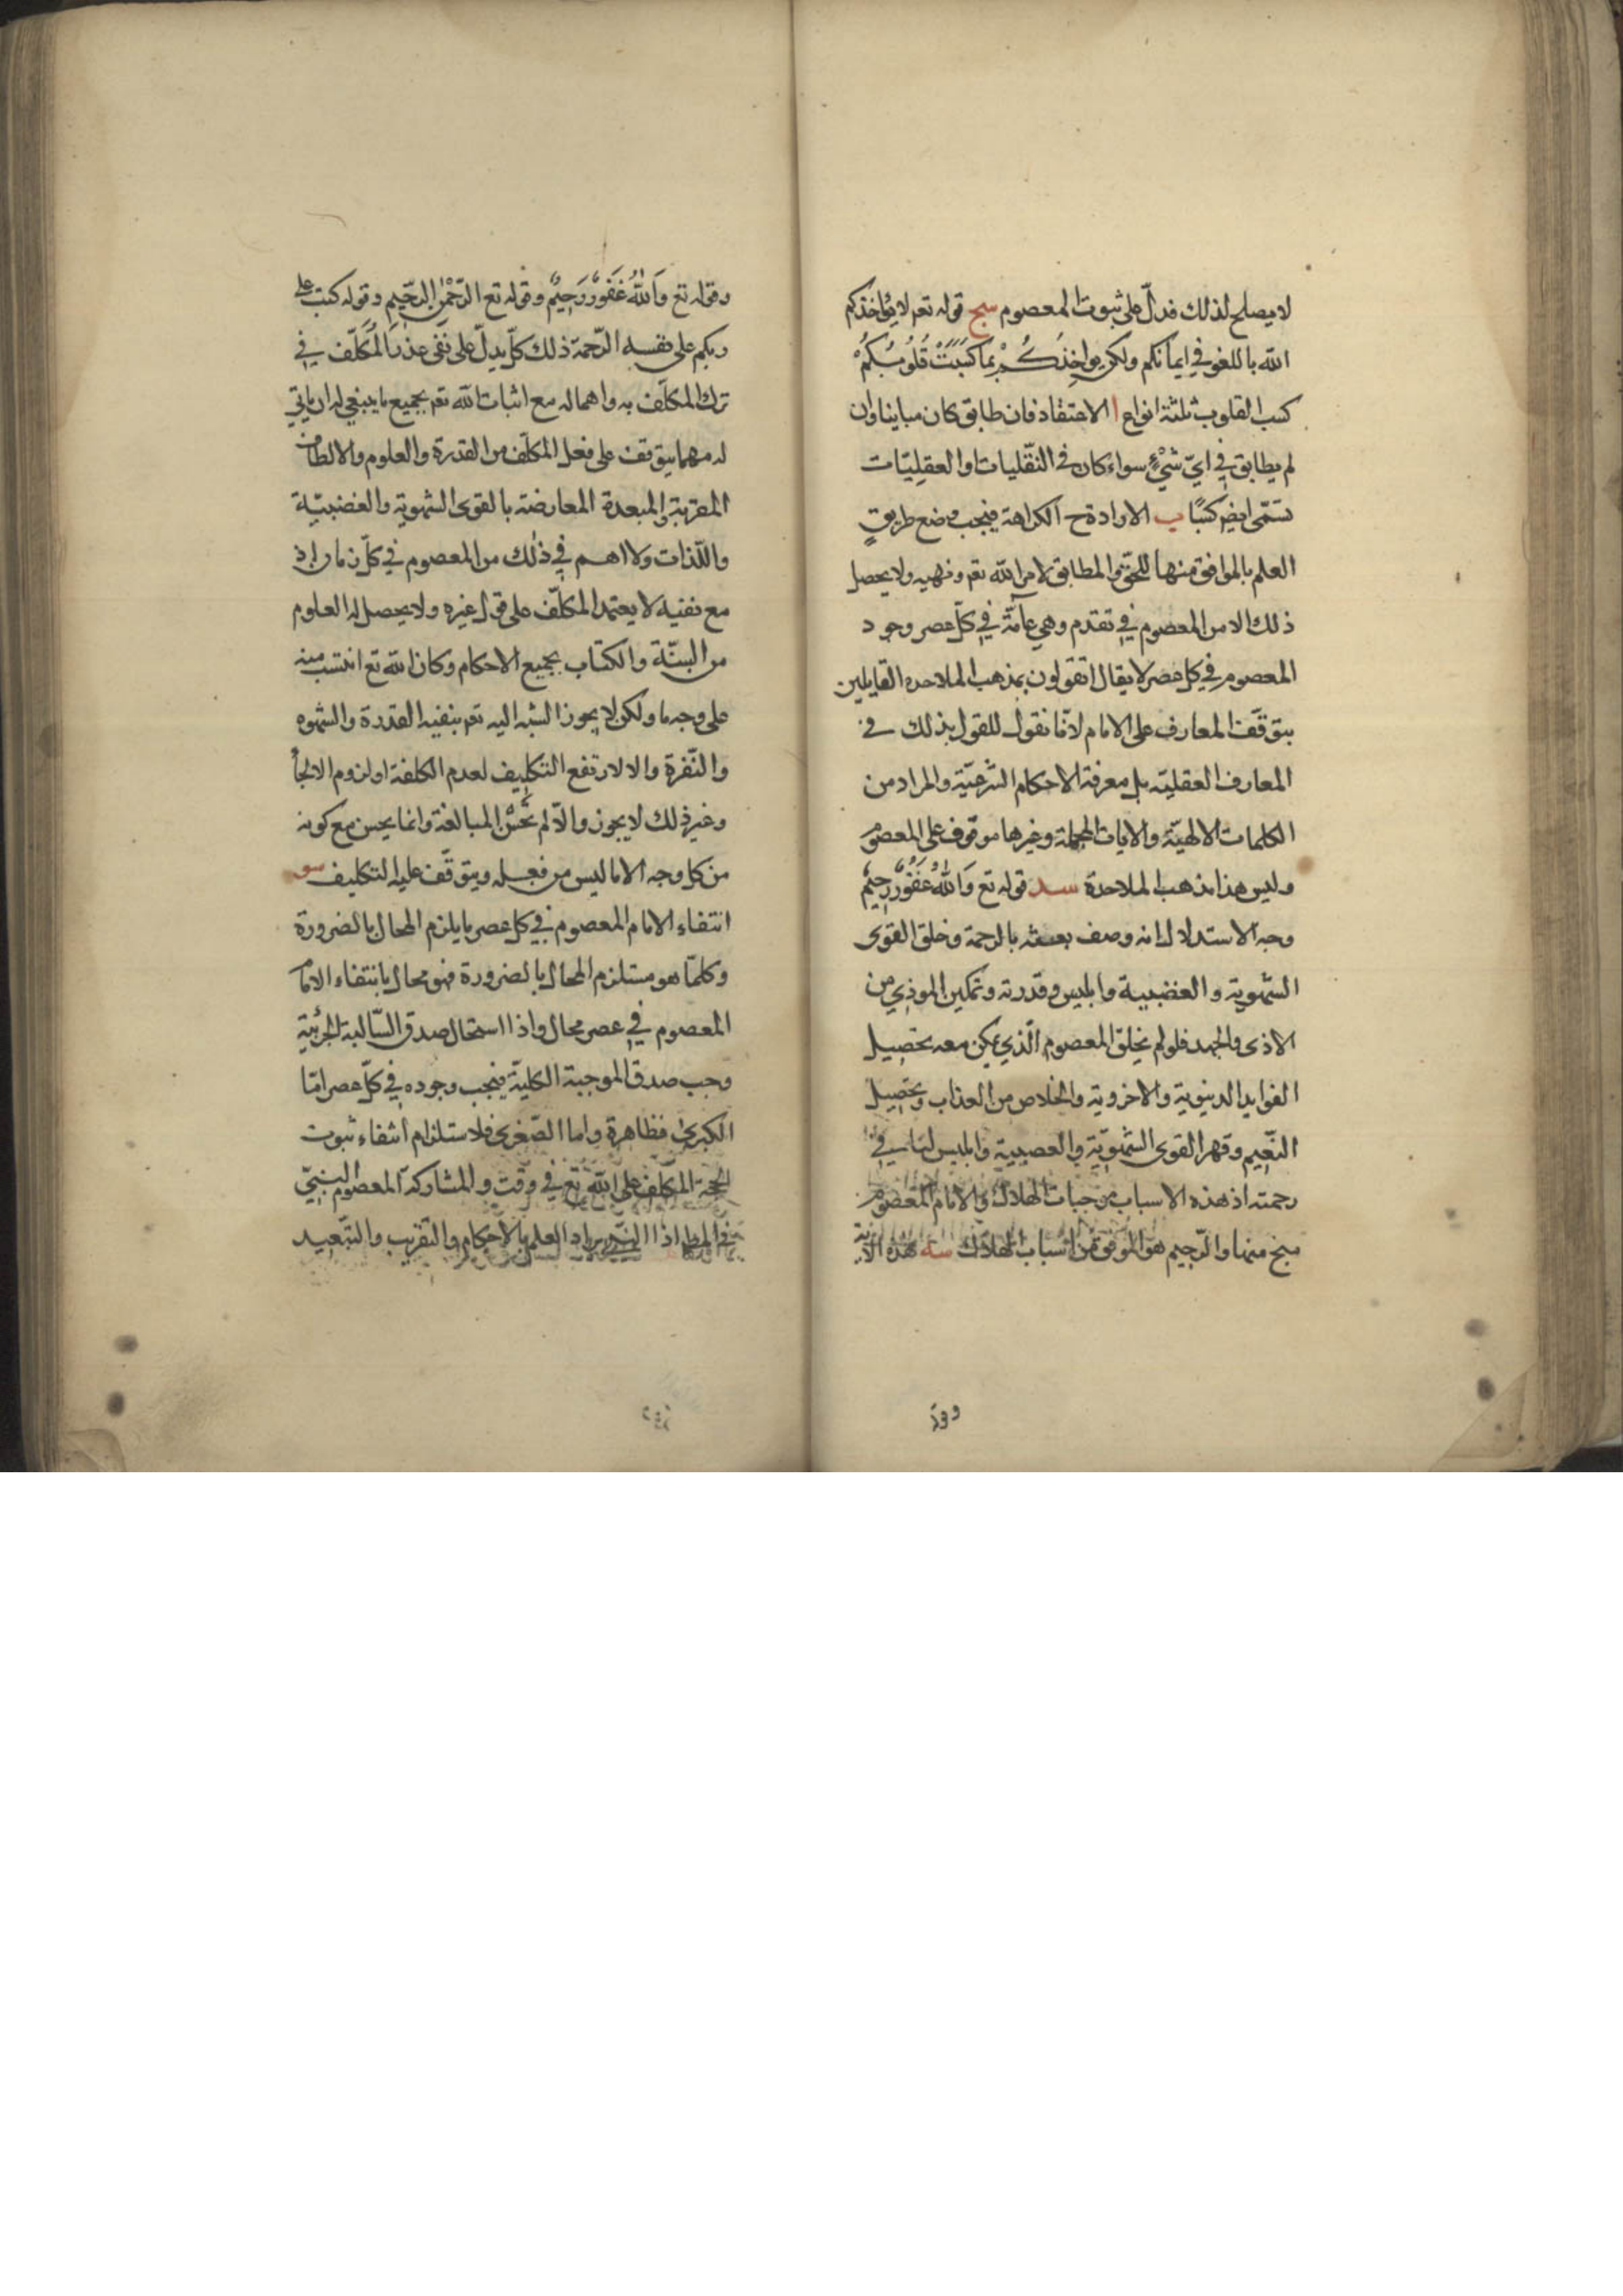 لا يصلح لذلك فدلّ على ثبوت المعصوم سج قوله تعم لا يؤاخذكم
الله باللغو في ايمانكم ولكن يواخذكم بما كسبت قلوبكم
كسب القلوب ثلثة انواع ا الاعتقاد فان طابق كان مباينا وان
لم يطابق في ايّ شيء سواء كان في النقليات او العقليّات
تسمّى ايضا كسبًا ب الارادة ح الكراهة فيجب وضع طريقٍ
العلم بالموافق منها للحق والمطابق لامر الله تعم ونهيه ولا يحصل
ذلك الا من المعصوم تقدم وهي عامّة في كلّ عصر وجود
المعصوم في كل عصر لا يقال اتقولون بمذهب الملاحده القايلين
بتوقّف المعارف على الامام لانّا نقول للقول بذلك في
المعارف العقليّه بل معرفة الاحكام الشرعيّة والمراد من
الكلمات الالهيّة والايات المجملة وغيرها موقوف على المعصوم
وليس هذا مذهب الملاحدة سد قوله تع وَاللهُ غَفُورٌ رحيمٌ
وجه الاستدلال انه وصف بالرحمة وخلق القوى
الشهوية والغضبية وابليس وقدرته وتمكين الموذي من
الاذى والجهد فلو لم يخلق المعصوم الّذي يمكن معه تحصيل
الفوايد الدنيوية والاخروية والخلاص من العذاب وتحصيل
النّعيم وقهر القوى الشهويّة والعصبية وابليس
رحمته اذ هذه الاسباب موجبات الهلاك والامام المعصوم
منج منها والرّحيم هو الموفق من اسباب الهلاك سه هذه الاية
وقوله تع وَاللهُ غَفورٌ رَحِيمٌ وقوله تع الرّحمٰن الرّحيم وقوله كتب على
ربكم على نفسه الرّحمة ذلك كلّ يدلّ على نفى عذر المكلّف في
ترك المكلّف به واهماله مع اثبات الله تعم بجميع ما ينبغي له ان ياتي
له مهما يتوقف على فعل المكلّف من القدرة والعلوم والالطاف
المقربة والمبعدة المعارضة بالقوى الشهوية والغضبيّة
واللّذات ولا اهم في ذلك من المعصوم في كلّ زمان اذ
مع نفيه لا يعتمد المكلّف على قول غيره ولا يحصل له العلوم
من السنّة والكتاب بجميع الاحكام وكان الله تع انتسب منه
على وجه ما ولكن لا يجوز النسبة اليه تعم بنفيه القدرة والشهوه
والنّفرة والا لارتفع التكليف لعدم الكلفة او لزوم الالجأ
وغير ذلك لا يجوز والّا لم تحسن المبالغة وانما يحسن مع كونه
من كل وجه الا ما ليس من فعله ويتوقّف عليه التكليف سو
انتفاء الامام المعصوم في كل عصر ما يلزم المحال بالضرورة
وكلّما هو مستلزم المحال بالضرورة فهو محال بانتفاء الامام
المعصوم في عصر محال واذا استحال صدق السّالبة الجزئية
وجب صدق الموجبة الكلية فيجب وجوده في كلّ عصر امّا
الكبرى فظاهرة واما الصّغرى فلاستلزام انتفاء ثبوت
الحجة المكلّف على الله تع في وقت والمشاركة المعصوم النبيّ
في المطـ اذا العلم بالاحكام والتقريب والتبعيد